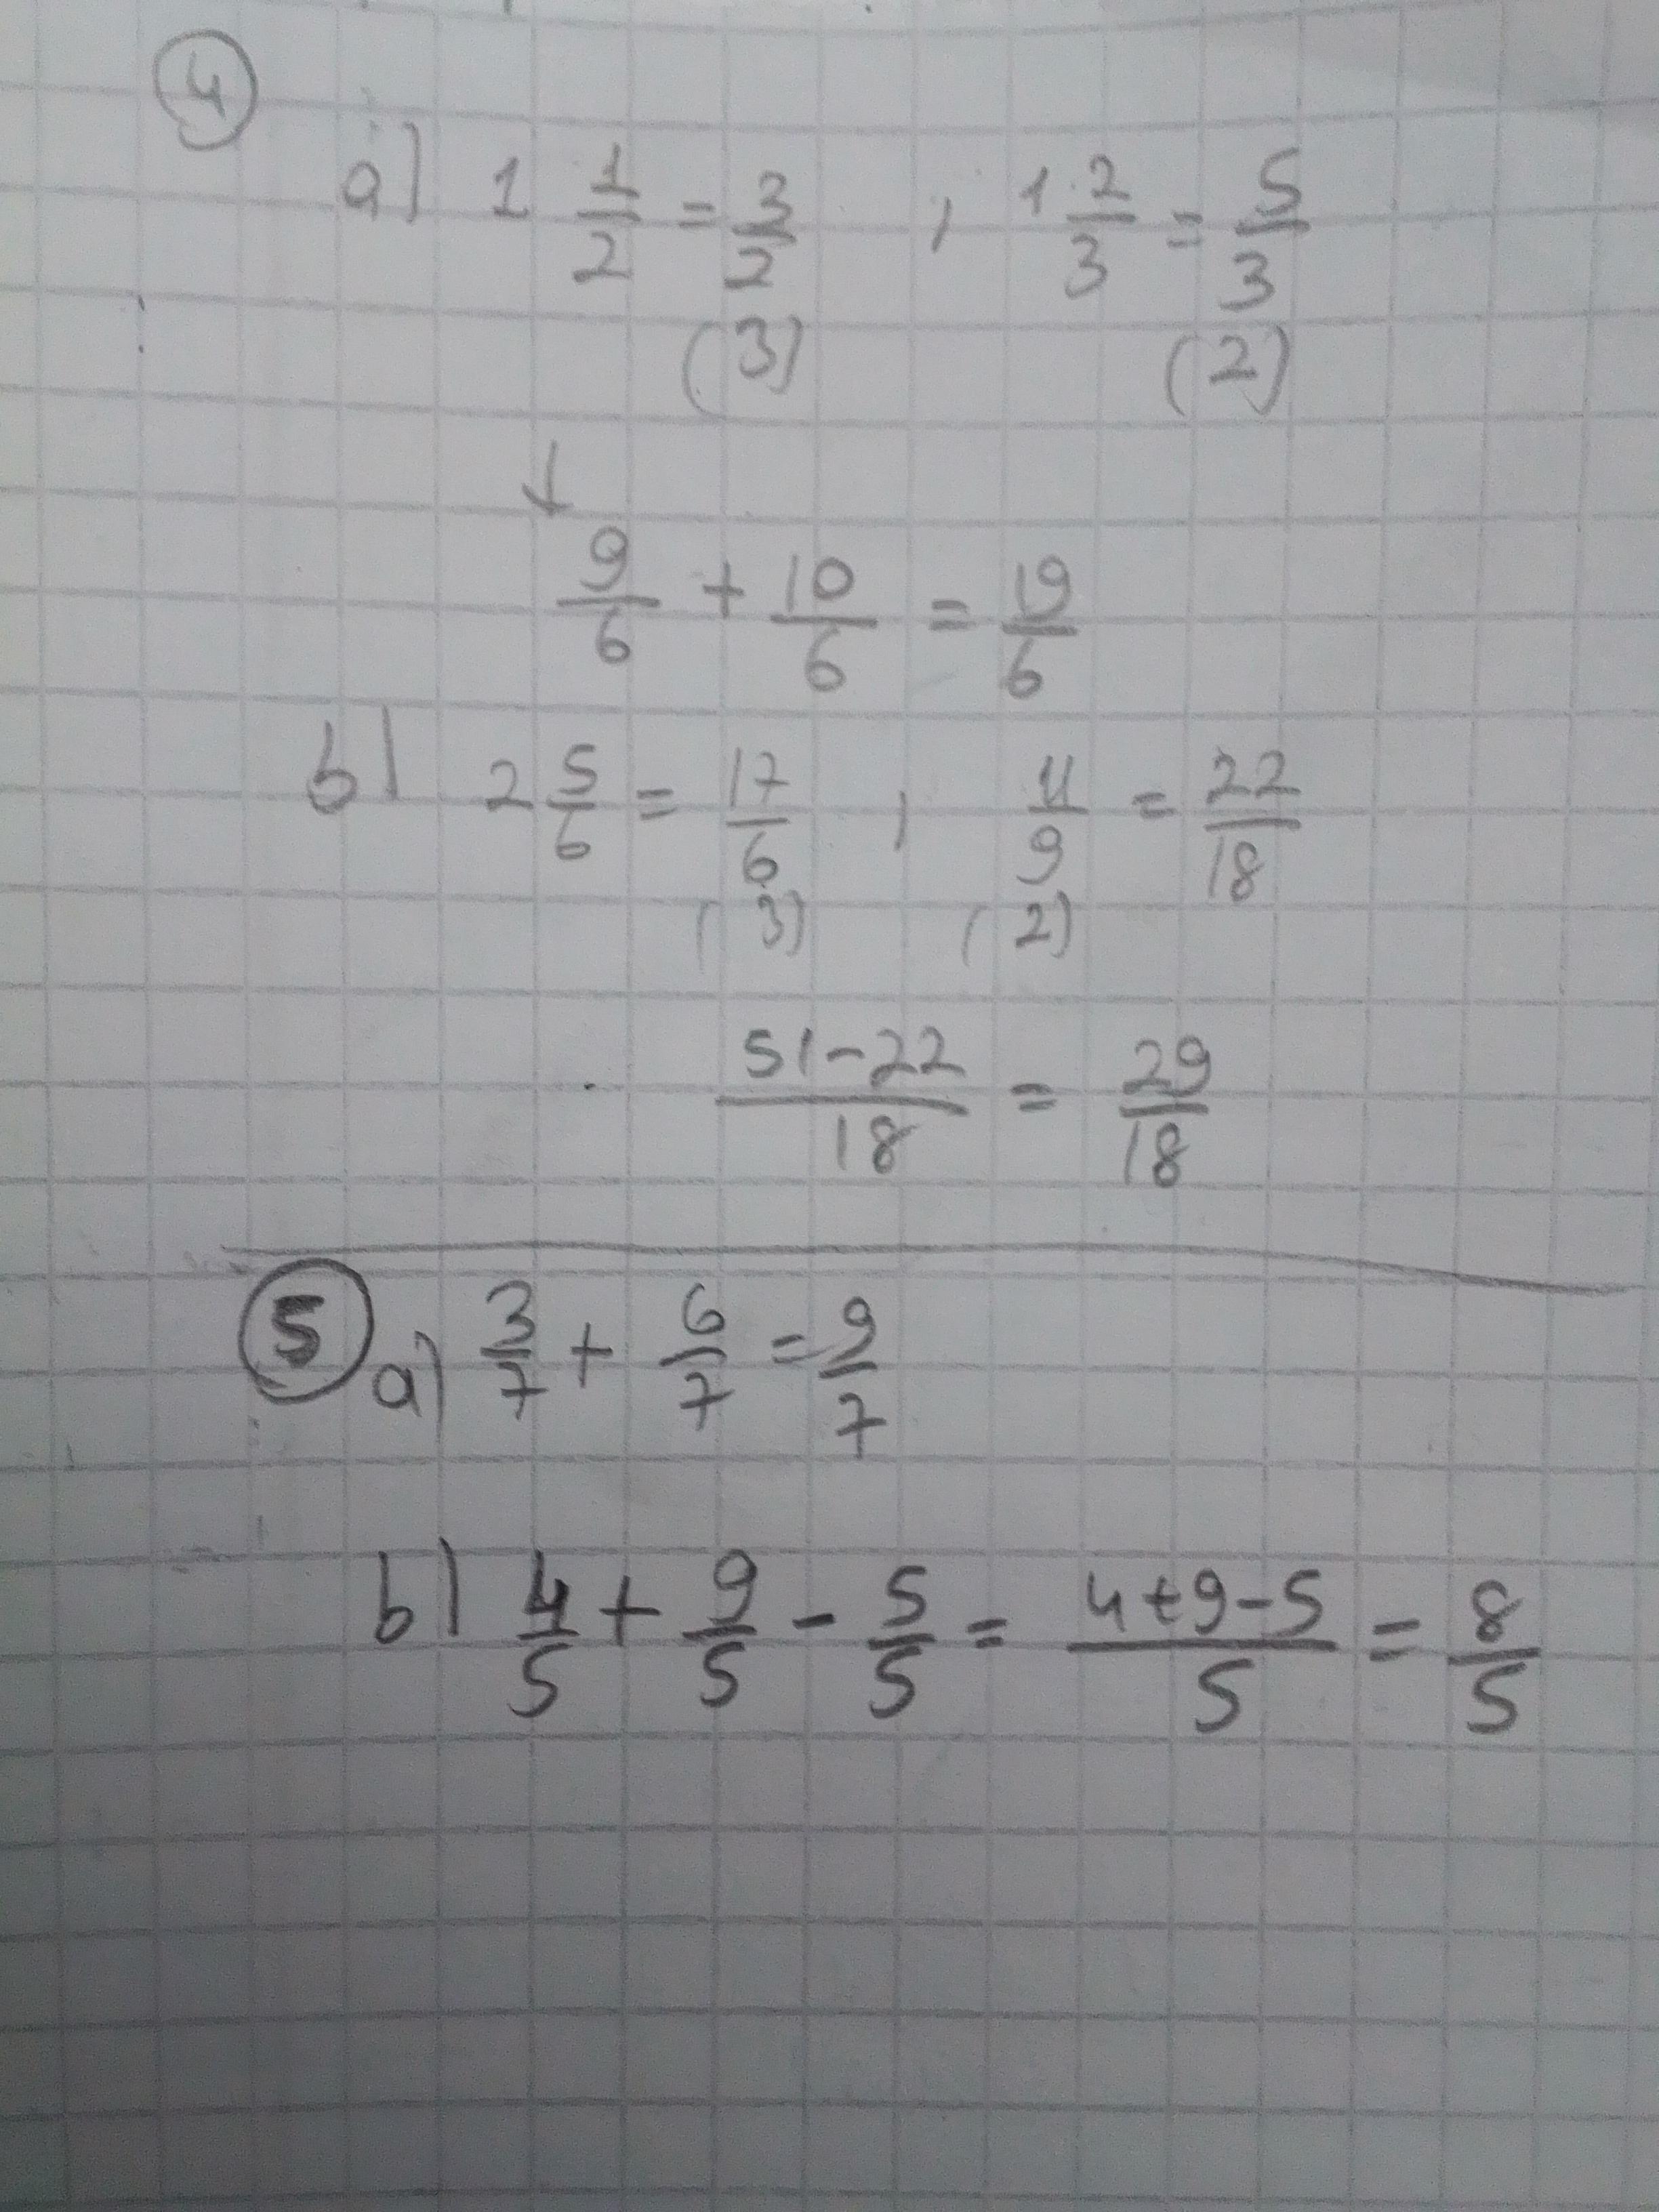 4
a) 1 1/2 = 3/2 , 1 2/3 = 5/3
(3) (2)
9/6 + 10/6 = 19/6
b) 2 5/6 = 17/6 , 11/9 = 22/18
(3) (2)
51-22/18 = 29/18
5 a) 3/7 + 6/7 = 9/7
b) 4/5 + 9/5 - 5/5 = 4+9-5/5 = 8/5